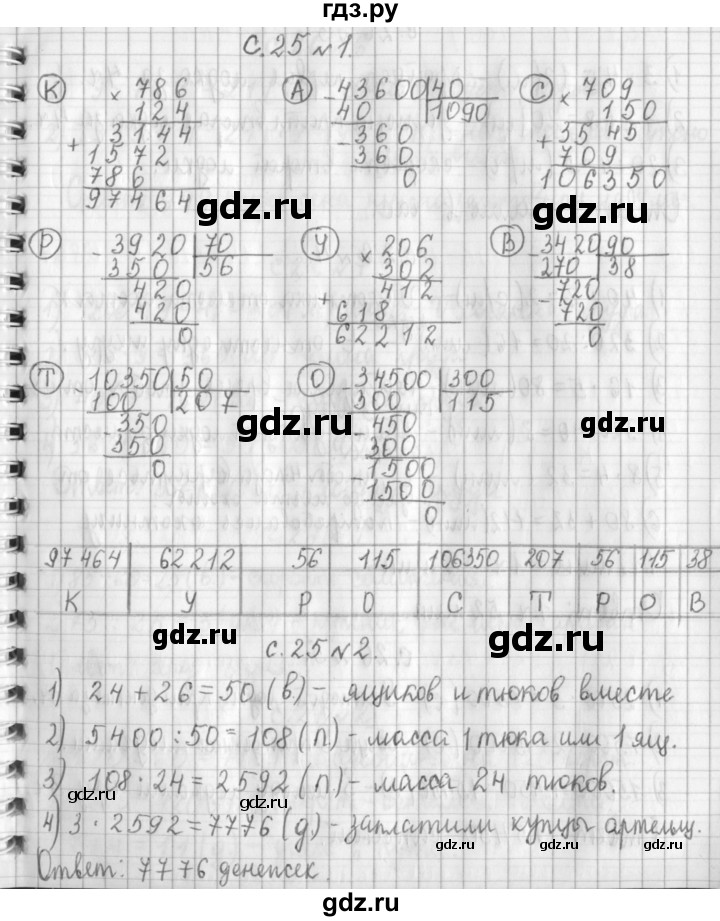 гдз.ру
с.25 №1.
К × 786 А - 43600 | 40 С × 709
124 40 1090 150
+ 3144 - 360 + 3545
1572 360 709
786 0 106350
97464
gdz.ru gdz.ru
Р - 3920 | 70 У × 206 В - 3420 | 90
350 56 302 270 38
- 420 + 412 - 720
420 618 720
0 62212 0
gdz.ru
Т - 10350 | 50 О - 34500 | 300
100 207 300 115
- 350 - 450
350 300
0 - 1500
1500
0
gdz.ru gdz.ru
97464 62212 56 115 106350 207 56 115 38
К У Р О С Т Р О В
gdz.ru gdz.ru
с.25 №2.
1) 24 + 26 = 50 (в) - ящиков и тюков вместе
2) 5400 : 50 = 108 (п) - масса 1 тюка или 1 ящ.
3) 108 · 24 = 2592 (п) - масса 24 тюков.
gdz.ru gdz.ru
4) 3 · 2592 = 7776 (д) - заплатили купцы артельщ.
Ответ: 7776 денежек.
gdz.ru
gdz.ru